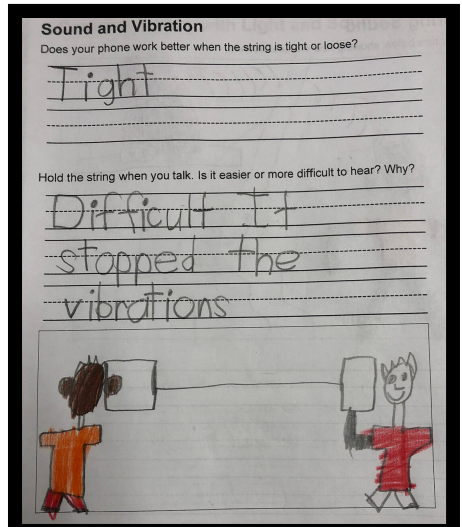 Sound and Vibration
Does your phone work better when the string is tight or loose?
Tight
Hold the string when you talk. Is it easier or more difficult to hear? Why?
Difficult It
stopped the
vibrations